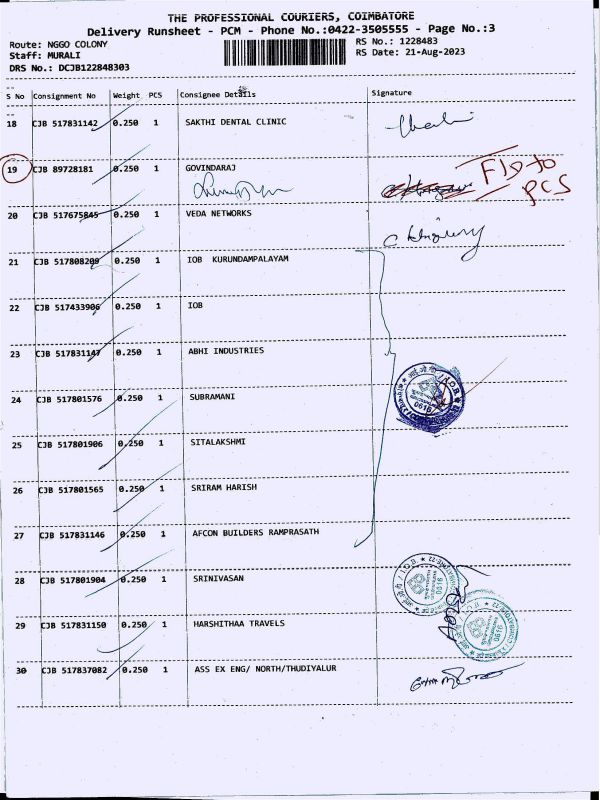 THE PROFESSIONAL COURIERS, COIMBATORE
Delivery Runsheet - PCM - Phone No.:0422-3505555 - Page No.:3
Route: NGGO COLONY RS No.: 1228483
Staff: MURALI RS Date: 21-Aug-2023
DRS No.: DCJB122848303
S No Consignment No Weight PCS Consignee Details Signature
18 CJB 517831142 0.250 1 SAKTHI DENTAL CLINIC
19 CJB 89728181 0.250 1 GOVINDARAJ
PCS
20 CJB 517675845 0.250 1 VEDA NETWORKS
21 CJB 517808209 0.250 1 IOB KURUNDAMPALAYAM
22 CJB 517433906 0.250 1 IOB
23 CJB 517831147 0.250 1 ABHI INDUSTRIES
24 CJB 517801576 0.250 1 SUBRAMANI
0616
25 CJB 517801906 0.250 1 SITALAKSHMI
26 CJB 517801565 0.250 1 SRIRAM HARISH
27 CJB 517831146 0.250 1 AFCON BUILDERS RAMPRASATH
28 CJB 517801904 0.250 1 SRINIVASAN
0616
29 CJB 517831150 0.250 1 HARSHITHAA TRAVELS
0616
30 CJB 517837082 0.250 1 ASS EX ENG/ NORTH/THUDIYALUR